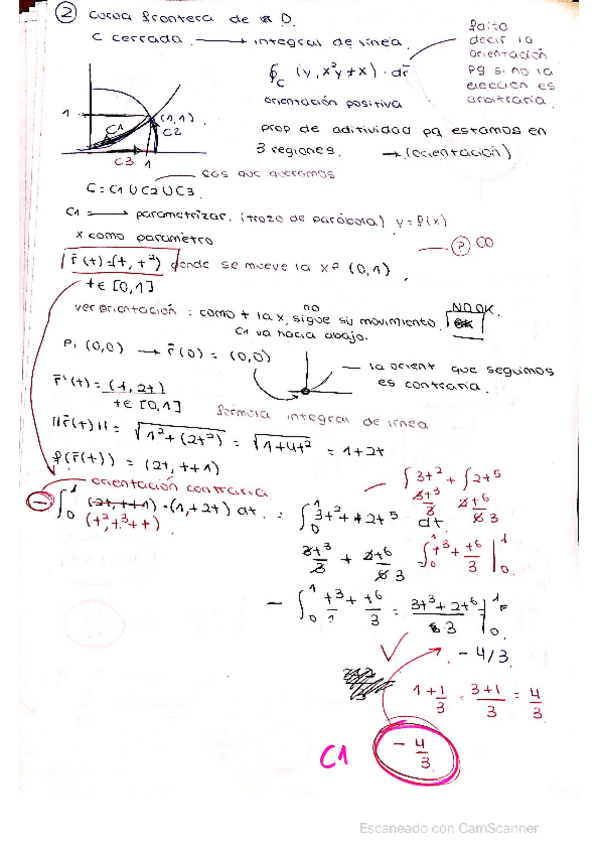 ② curva frontera de D.
C cerrada. → integral de línea.
∮c (y, x²y+x) · dr̄
falta decir la orientación pq si no la elección es arbitraria.
orientación positiva
1
(1,1)
C1
C2
C3
1
prop de aditividad pq estamos en
3 regiones. → (orientación)
las que queramos
C = C1 ∪ C2 ∪ C3.
C1 → parametrizar. (trozo de parábola) y = f(x)
x como parametro
r̄(t) = (t, t²) donde se mueve la x? (0,1)
t ∈ [0,1]
ver orientación: como t la x, no sigue su movimiento.
NO OK.
C1 va hacia abajo.
P1 (0,0) → r̄(0) = (0,0)
la orient que seguimos
es contraria.
r̄'(t) = (1, 2t)
t ∈ [0,1]
fórmula integral de línea
||r̄(t)|| = √1²+(2t²) = √1+4t² = 1+2t
f(r̄(t)) = (2t, t+1)
orientación contraria
∫3t² + ∫2t⁵
- ∫₀¹ (2t, t+1) · (1,+2t) dt. = ∫₀¹ 3t²+2t⁵ dt.
3t³/3 + 2t⁶/6 3
∫₀¹ t³ + t⁶/3 |₀¹
- ∫₀¹ t³ + t⁶/3 = 3t³+2t⁶/3 |₀¹
- 4/3
1 + 1/3 = 3+1/3 = 4/3
C1
- 4/3
Escaneado con CamScanner